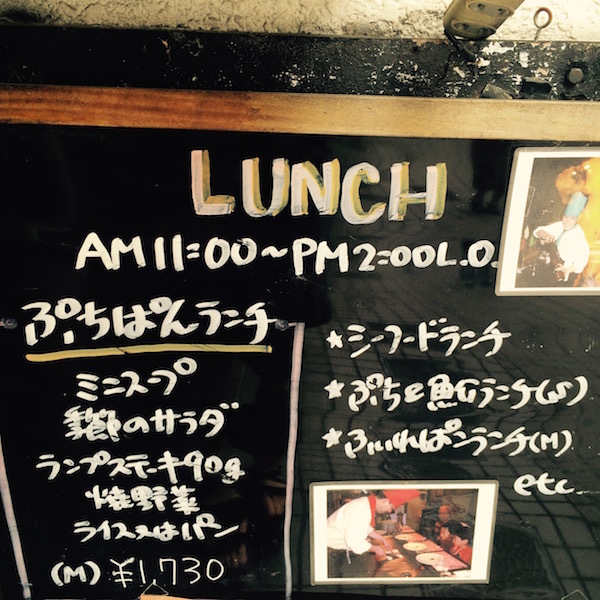 LUNCH
AM11:00~PM2:00L.O.
ぷちぱんランチ
ミニスープ
季節のサラダ
ランプステーキ90g
焼野菜
ライス又はパン
(M) ¥1,730
★シーフードランチ
★ぷちと魚ランチ(S)
★ふぃれぱんランチ(M)
etc